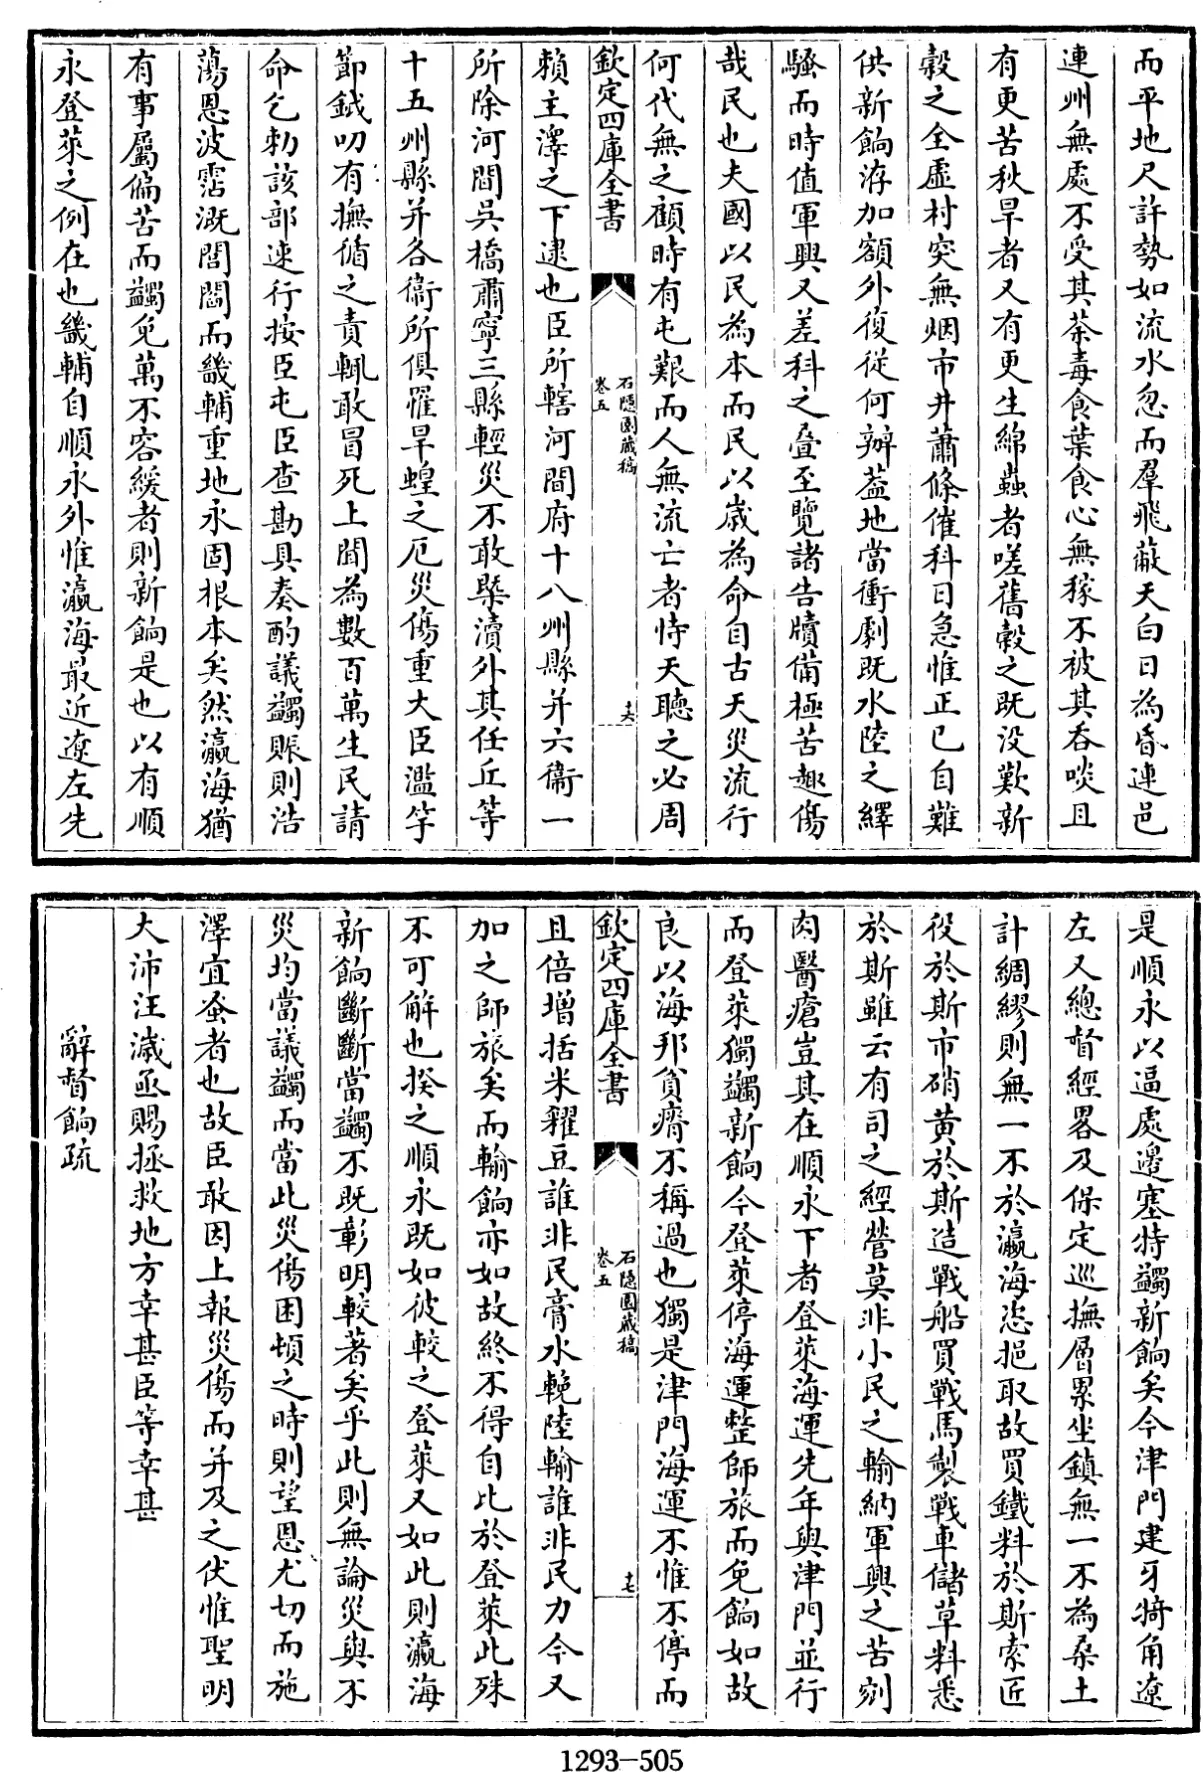 而平地尺許勢如流水忽而羣飛蔽天白日為昏連邑
連州無處不受其荼毒食葉食心無稼不被其吞啖且
有更苦秋旱者又有更生綿蟲者嗟舊穀之既没歎新
穀之全虚村突無烟市井蕭條催科日急惟正已自難
供新餉洊加額外復從何辦葢地當衝劇既水陸之繹
騷而時值軍興又差科之疊至覽諸告牘備極苦趣傷
哉民也夫國以民為本而民以歳為命自古天災流行
何代無之顧時有屯艱而人無流亡者恃天聽之必周
欽定四庫全書
石隱園藏稿
卷五
十六
賴主澤之下逮也臣所轄河間府十八州縣并六衞一
所除河間吳橋肅寧三縣輕災不敢槩瀆外其任丘等
十五州縣并各衞所俱罹旱蝗之厄災傷重大臣濫竽
節鉞叨有撫循之責輒敢冒死上聞為數百萬生民請
命乞勅該部速行按臣屯臣查勘具奏酌議蠲賑則浩
蕩恩波霑溉閭閻而畿輔重地永固根本矣然瀛海猶
有事屬偏苦而蠲免萬不容緩者則新餉是也以有順
永登萊之例在也畿輔自順永外惟瀛海最近遼左先
是順永以逼處邊塞特蠲新餉矣今津門建牙犄角遼
左又總督經畧及保定巡撫層累坐鎮無一不為桑土
計綢繆則無一不於瀛海恣挹取故買鐵料於斯索匠
役於斯市硝黄於斯造戰船買戰馬製戰車儲草料悉
於斯雖云有司之經營莫非小民之輸納軍興之苦剜
肉醫瘡豈其在順永下者登萊海運先年與津門並行
而登萊獨蠲新餉今登萊停海運整師旅而免餉如故
良以海邦貧瘠不稱過也獨是津門海運不惟不停而
欽定四庫全書
石隱園藏稿
卷五
十七
且倍增括米糴豆誰非民膏水輓陸輸誰非民力今又
加之師旅矣而輸餉亦如故終不得自比於登萊此殊
不可解也揆之順永既如彼較之登萊又如此則瀛海
新餉斷斷當蠲不既彰明較著矣乎此則無論災與不
災均當議蠲而當此災傷困頓之時則望恩尤切而施
澤宜蚤者也故臣敢因上報災傷而并及之伏惟聖明
大沛汪濊亟賜拯救地方幸甚臣等幸甚
辭督餉疏
1293-505